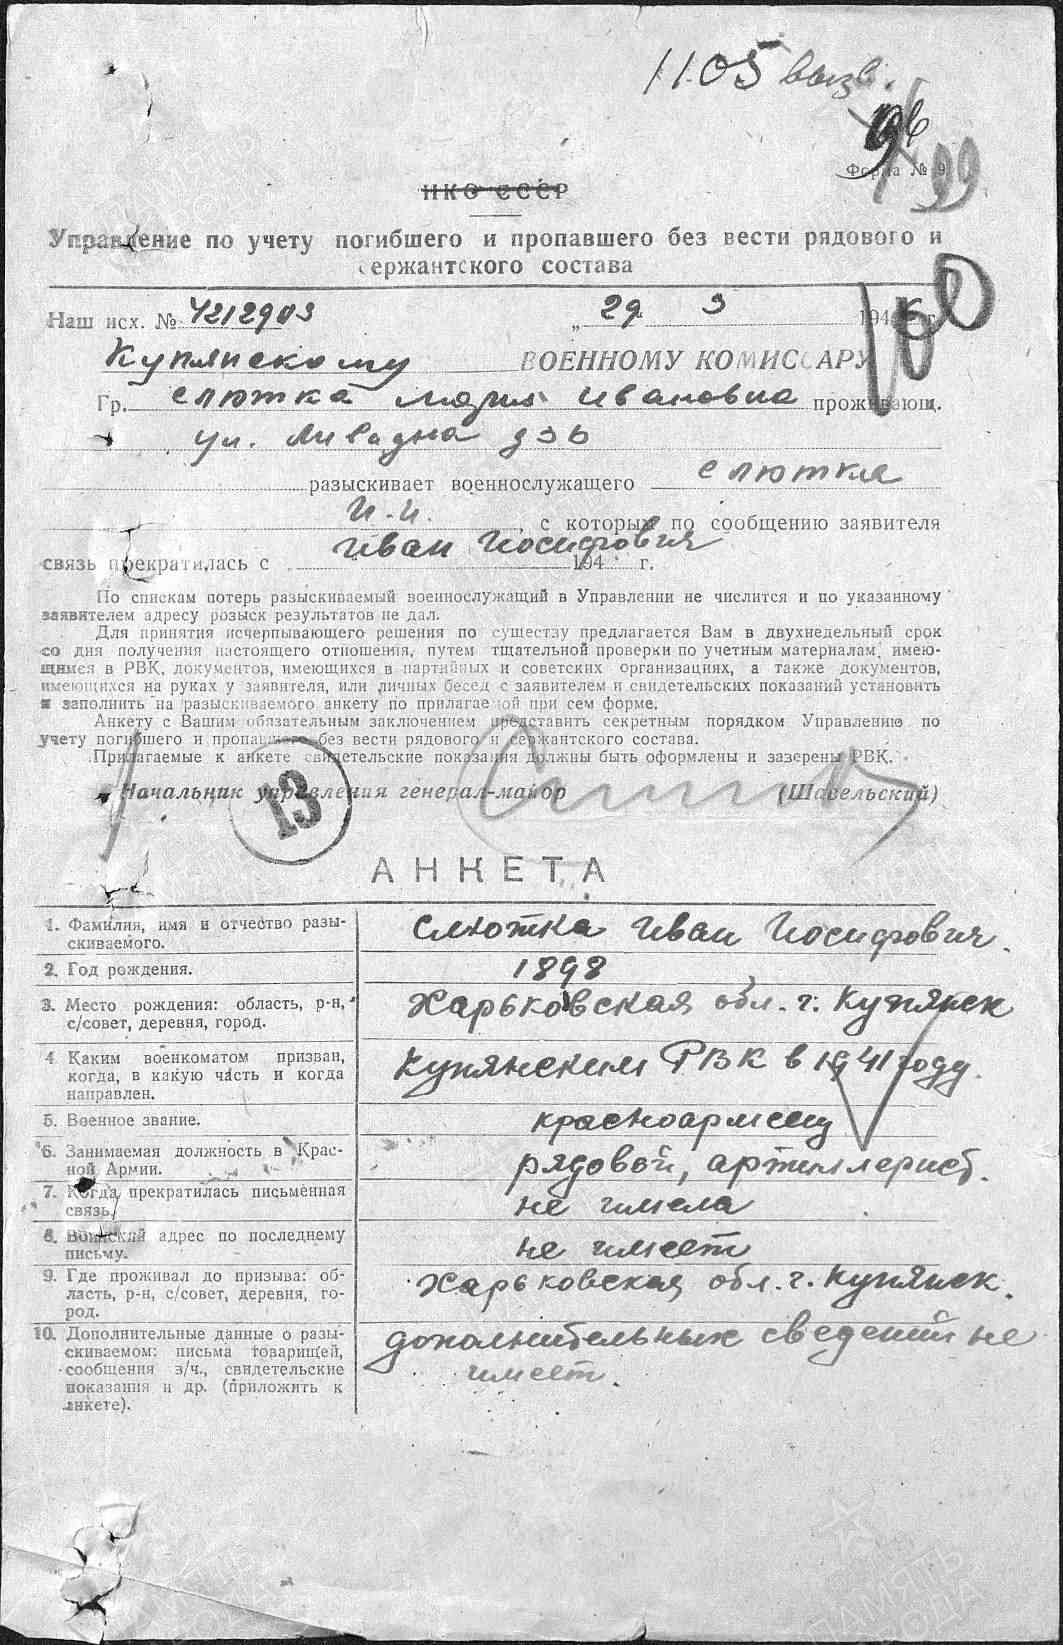 1105 вызв.
96
99
Форма № 9
НКО СССР
Управление по учету погибшего и пропавшего без вести рядового и
сержантского состава
Наш исх. № 4212903 „ 29 3 194 г.
Купянскому ВОЕННОМУ КОМИССАРУ
Гр. Слютка Мария Ивановна проживающ.
ул. Ливадна д 36
разыскивает военнослужащего Слютка
И.И. , с которым по сообщению заявителя
Иван Иосифович
связь прекратилась с 194 г.
По спискам потерь разыскиваемый военнослужащий в Управлении не числится и по указанному
заявителем адресу розыск результатов не дал.
Для принятия исчерпывающего решения по существу предлагается Вам в двухнедельный срок
со дня получения настоящего отношения, путем тщательной проверки по учетным материалам, имею-
щимся в РВК, документов, имеющихся в партийных и советских организациях, а также документов,
имеющихся на руках у заявителя, или личных бесед с заявителем и свидетельских показаний установить
и заполнить на разыскиваемого анкету по прилагаемой при сем форме.
Анкету с Вашим обязательным заключением представить секретным порядком Управлению по
учету погибшего и пропавшего без вести рядового и сержантского состава.
Прилагаемые к анкете свидетельские показания должны быть оформлены и заверены РВК.
Начальник управления генерал-майор (Шавельский)
13
АНКЕТА
1. Фамилия, имя и отчество разы-
скиваемого.
Слютка Иван Иосифович.
2. Год рождения.
1898
3. Место рождения: область, р-н,
с/совет, деревня, город.
Харьковская обл. г. Купянск
4 Каким военкоматом призван,
когда, в какую часть и когда
направлен.
Купянским РВК в 1941 году.
5. Военное звание.
красноармеец
6. Занимаемая должность в Крас-
ной Армии.
рядовой, артиллерист.
7. Когда прекратилась письменная
связь.
не имела
8. Воинский адрес по последнему
письму.
не имеет
9. Где проживал до призыва: об-
ласть, р-н, с/совет, деревня, го-
род.
Харьковская обл. г. Купянск.
10. Дополнительные данные о разы-
скиваемом: письма товарищей,
сообщения з/ч., свидетельские
показания и др. (приложить к
анкете).
дополнительных сведений не
имеет.